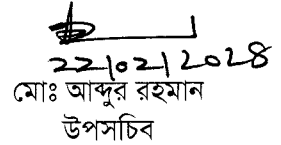 22/02/2028
মোঃ আব্দুর রহমান
উপসচিব